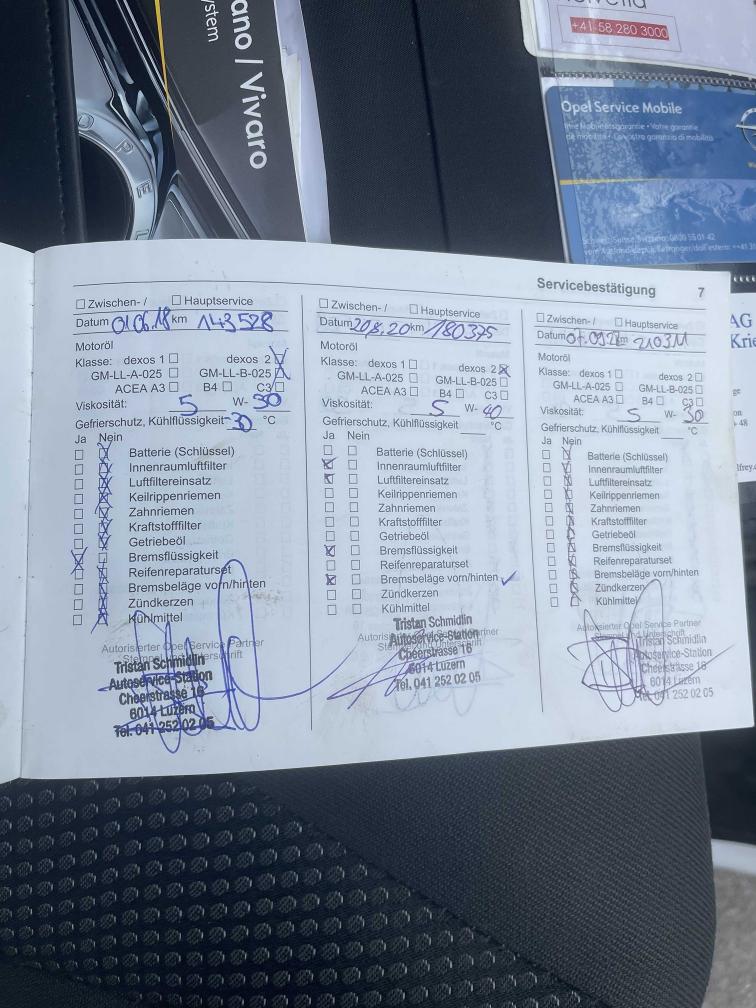 ano / Vivaro
ystem
OPEL
+41 58 280 3000
Opel Service Mobile
Servicebestätigung 7
☐ Zwischen- / ☐ Hauptservice
Datum 01.06.18 km 143528
Motoröl
Klasse: dexos 1 ☐ dexos 2 ☒
GM-LL-A-025 ☐ GM-LL-B-025 ☒
ACEA A3 ☐ B4 ☐ C3 ☐
Viskosität: 5 W- 30
Gefrierschutz, Kühlflüssigkeit -30 °C
Ja Nein
☐ ☒ Batterie (Schlüssel)
☐ ☒ Innenraumluftfilter
☐ ☒ Luftfiltereinsatz
☐ ☒ Keilrippenriemen
☐ ☒ Zahnriemen
☐ ☒ Kraftstofffilter
☐ ☒ Getriebeöl
☒ ☐ Bremsflüssigkeit
☐ ☒ Reifenreparaturset
☐ ☒ Bremsbeläge vorn/hinten
☐ ☒ Zündkerzen
☐ ☒ Kühlmittel
Autorisierter Opel Service Partner
Tristan Schmidlin
Autoservice-Station
Cheerstrasse 16
6014 Luzern
Tel. 041 252 02 05
☐ Zwischen- / ☐ Hauptservice
Datum 20.8.20 km 180375
Motoröl
Klasse: dexos 1 ☐ dexos 2 ☒
GM-LL-A-025 ☐ GM-LL-B-025 ☐
ACEA A3 ☐ B4 ☐ C3 ☐
Viskosität: 5 W- 40
Gefrierschutz, Kühlflüssigkeit °C
Ja Nein
☐ ☐ Batterie (Schlüssel)
☒ ☐ Innenraumluftfilter
☒ ☐ Luftfiltereinsatz
☐ ☐ Keilrippenriemen
☐ ☐ Zahnriemen
☐ ☐ Kraftstofffilter
☐ ☐ Getriebeöl
☒ ☐ Bremsflüssigkeit
☐ ☐ Reifenreparaturset
☒ ☐ Bremsbeläge vorn/hinten ✓
☐ ☐ Zündkerzen
☐ ☐ Kühlmittel
Tristan Schmidlin
Autoservice-Station
Cheerstrasse 16
6014 Luzern
Tel. 041 252 02 05
☐ Zwischen- / ☐ Hauptservice
Datum km
Motoröl
Klasse: dexos 1 ☐ dexos 2 ☐
GM-LL-A-025 ☐ GM-LL-B-025 ☐
ACEA A3 ☐ B4 ☐ C3 ☐
Viskosität: 5 W- 30
Gefrierschutz, Kühlflüssigkeit °C
Ja Nein
☐ ☒ Batterie (Schlüssel)
☐ ☒ Innenraumluftfilter
☐ ☒ Luftfiltereinsatz
☐ ☒ Keilrippenriemen
☐ ☒ Zahnriemen
☐ ☒ Kraftstofffilter
☐ ☒ Getriebeöl
☐ ☒ Bremsflüssigkeit
☐ ☒ Reifenreparaturset
☐ ☒ Bremsbeläge vorn/hinten
☐ ☒ Zündkerzen
☐ ☒ Kühlmittel
Tristan Schmidlin
Autoservice-Station
Cheerstrasse 16
6014 Luzern
Tel. 041 252 02 05
AG